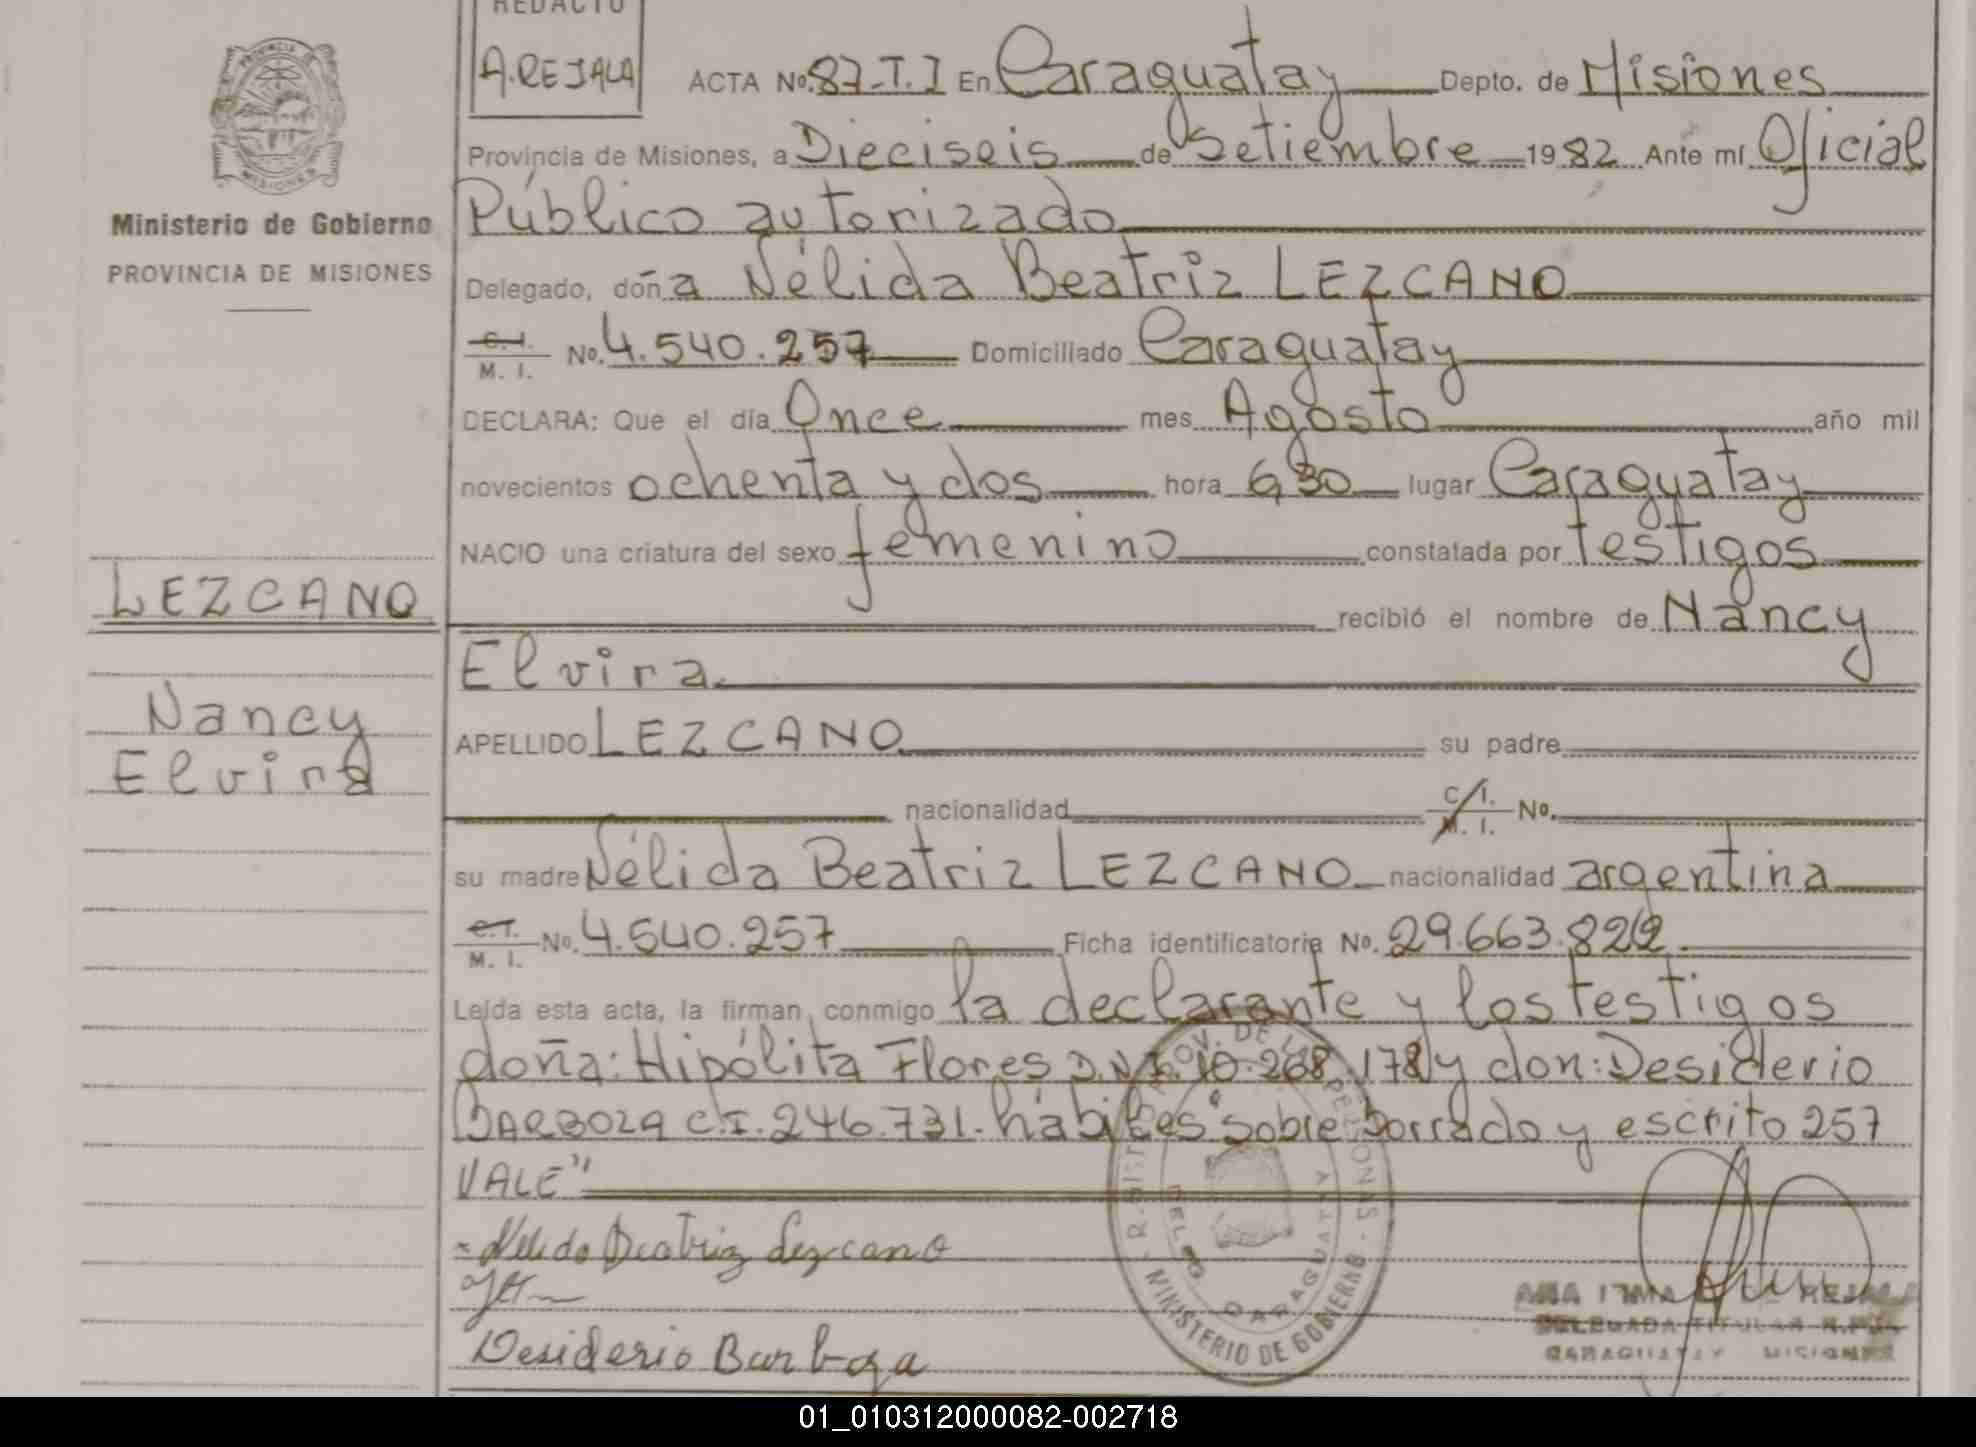 REDACTO
A.REJALA
ACTA No. 87-T.I En Caraguatay Depto. de Misiones
Provincia de Misiones, a Dieciseis de Setiembre 1982 Ante mí Oficial
Público autorizado
Delegado, doña Nélida Beatriz LEZCANO
C.I. M. I. No. 4.540.257 Domiciliado Caraguatay
DECLARA: Que el día Once mes Agosto año mil
novecientos ochenta y dos hora 6,30 lugar Caraguatay
NACIO una criatura del sexo femenino constatada por testigos
recibió el nombre de Nancy
Elvira
APELLIDO LEZCANO su padre
nacionalidad C.I. M. I. No.
su madre Nélida Beatriz LEZCANO nacionalidad argentina
C.I. M. I. No. 4.540.257 Ficha identificatoria No. 29.663.822
Leída esta acta, la firman conmigo la declarante y los testigos
doña: Hipólita Flores D.N.I. 10.268.178 y don: Desiderio
BARBOZA C.I. 246.731. hábiles "sobre borrado y escrito 257
VALE"
Nelida Beatriz Lezcano
Desiderio Barboza
Ministerio de Gobierno
PROVINCIA DE MISIONES
LEZCANO
Nancy
Elvira
PROVINCIA DE
MISIONES
PROV. DE LAS PERSONAS
MINISTERIO DE GOBIERNO
CARAGUATAY
ANA IRMA DE REJALA
DELEGADA TITULAR R.P.
CARAGUATAY MISIONES
01_010312000082-002718